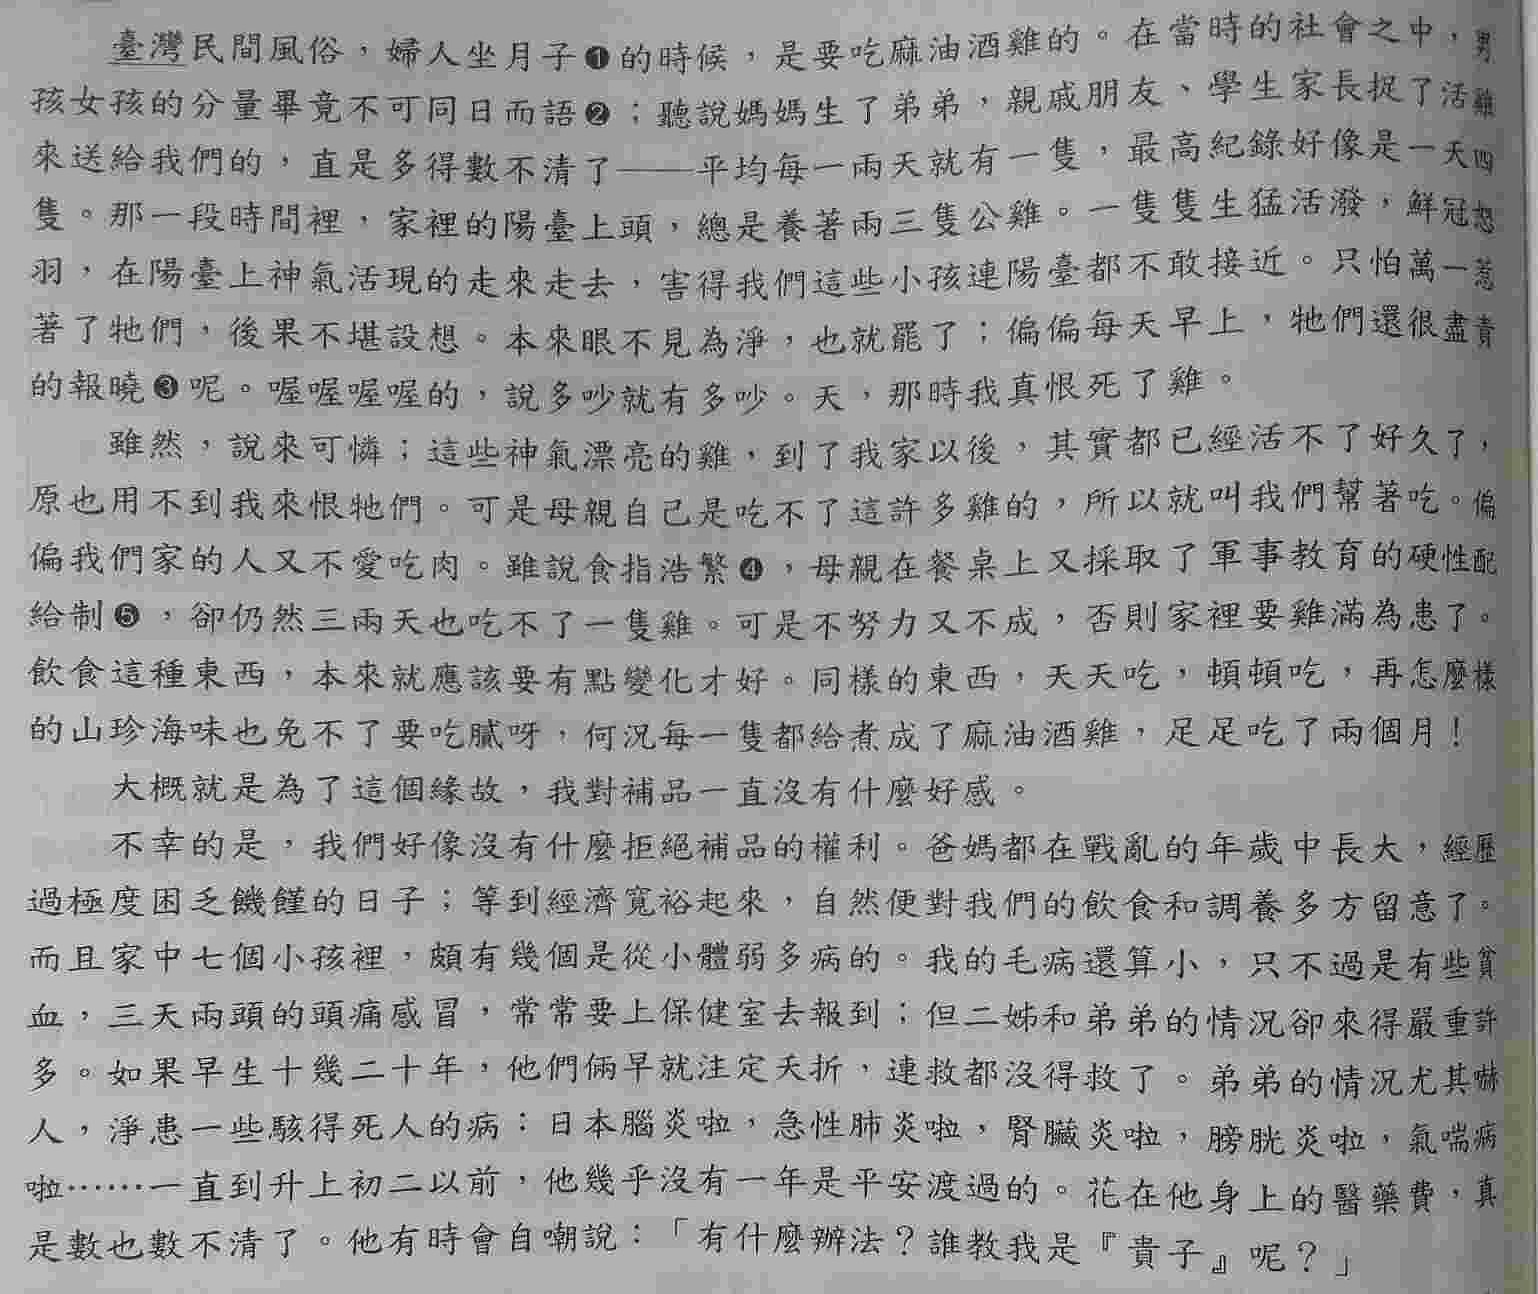 臺灣民間風俗，婦人坐月子❶的時候，是要吃麻油酒雞的。在當時的社會之中，男
孩女孩的分量畢竟不可同日而語❷；聽說媽媽生了弟弟，親戚朋友、學生家長捉了活雞
來送給我們的，直是多得數不清了——平均每一兩天就有一隻，最高紀錄好像是一天四
隻。那一段時間裡，家裡的陽臺上頭，總是養著兩三隻公雞。一隻隻生猛活潑，鮮冠怒
羽，在陽臺上神氣活現的走來走去，害得我們這些小孩連陽臺都不敢接近。只怕萬一惹
著了牠們，後果不堪設想。本來眼不見為淨，也就罷了；偏偏每天早上，牠們還很盡責
的報曉❸呢。喔喔喔喔的，說多吵就有多吵。天，那時我真恨死了雞。
雖然，說來可憐；這些神氣漂亮的雞，到了我家以後，其實都已經活不了好久了，
原也用不到我來恨牠們。可是母親自己是吃不了這許多雞的，所以就叫我們幫著吃。偏
偏我們家的人又不愛吃肉。雖說食指浩繁❹，母親在餐桌上又採取了軍事教育的硬性配
給制❺，卻仍然三兩天也吃不了一隻雞。可是不努力又不成，否則家裡要雞滿為患了。
飲食這種東西，本來就應該要有點變化才好。同樣的東西，天天吃，頓頓吃，再怎麼樣
的山珍海味也免不了要吃膩呀，何況每一隻都給煮成了麻油酒雞，足足吃了兩個月！
大概就是為了這個緣故，我對補品一直沒有什麼好感。
不幸的是，我們好像沒有什麼拒絕補品的權利。爸媽都在戰亂的年歲中長大，經歷
過極度困乏饑饉的日子；等到經濟寬裕起來，自然便對我們的飲食和調養多方留意了。
而且家中七個小孩裡，頗有幾個是從小體弱多病的。我的毛病還算小，只不過是有些貧
血，三天兩頭的頭痛感冒，常常要上保健室去報到；但二姊和弟弟的情況卻來得嚴重許
多。如果早生十幾二十年，他們倆早就注定夭折，連救都沒得救了。弟弟的情況尤其嚇
人，淨患一些駭得死人的病：日本腦炎啦，急性肺炎啦，腎臟炎啦，膀胱炎啦，氣喘病
啦……一直到升上初二以前，他幾乎沒有一年是平安渡過的。花在他身上的醫藥費，真
是數也數不清了。他有時會自嘲說：「有什麼辦法？誰教我是『貴子』呢？」